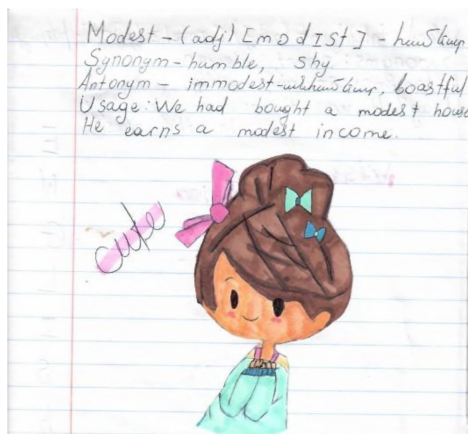 Modest - (adj) [mɒdIst] - համեստ
Synonym - humble, shy
Antonym - immodest - անհամեստ, boastful
Usage: We had bought a modest house
He earns a modest income.
cute